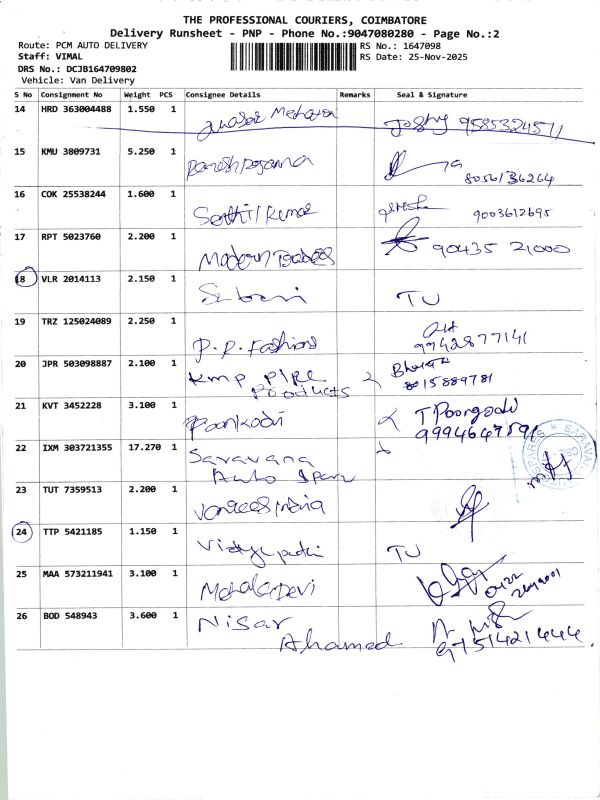 THE PROFESSIONAL COURIERS, COIMBATORE
Delivery Runsheet - PNP - Phone No.:9047080280 - Page No.:2
Route: PCM AUTO DELIVERY RS No.: 1647098
Staff: VIMAL RS Date: 25-Nov-2025
DRS No.: DCJB164709802
Vehicle: Van Delivery
S No Consignment No Weight PCS Consignee Details Remarks Seal & Signature
14 HRD 363004488 1.550 1 9585324511
15 KMU 3809731 5.250 1
8056136264
16 COK 25538244 1.600 1 Senthil Kumar 9003612695
17 RPT 5023760 2.200 1 Modern Traders 90435 21000
18 VLR 2014113 2.150 1 TU
19 TRZ 125024089 2.250 1 P.P. Fashions 9942877141
20 JPR 503098887 2.100 1 Kmp Pipe Products Bharath 8015889781
21 KVT 3452228 3.100 1 Poonkodi T Poongodi
9994647591
22 IXM 303721355 17.270 1 Saravana
Auto Spares
23 TUT 7359513 2.200 1
24 TTP 5421185 1.150 1 TU
25 MAA 573211941 3.100 1 MahalaDevi 0422
26 BOD 548943 3.600 1 Nisar
Ahamed 9751421444